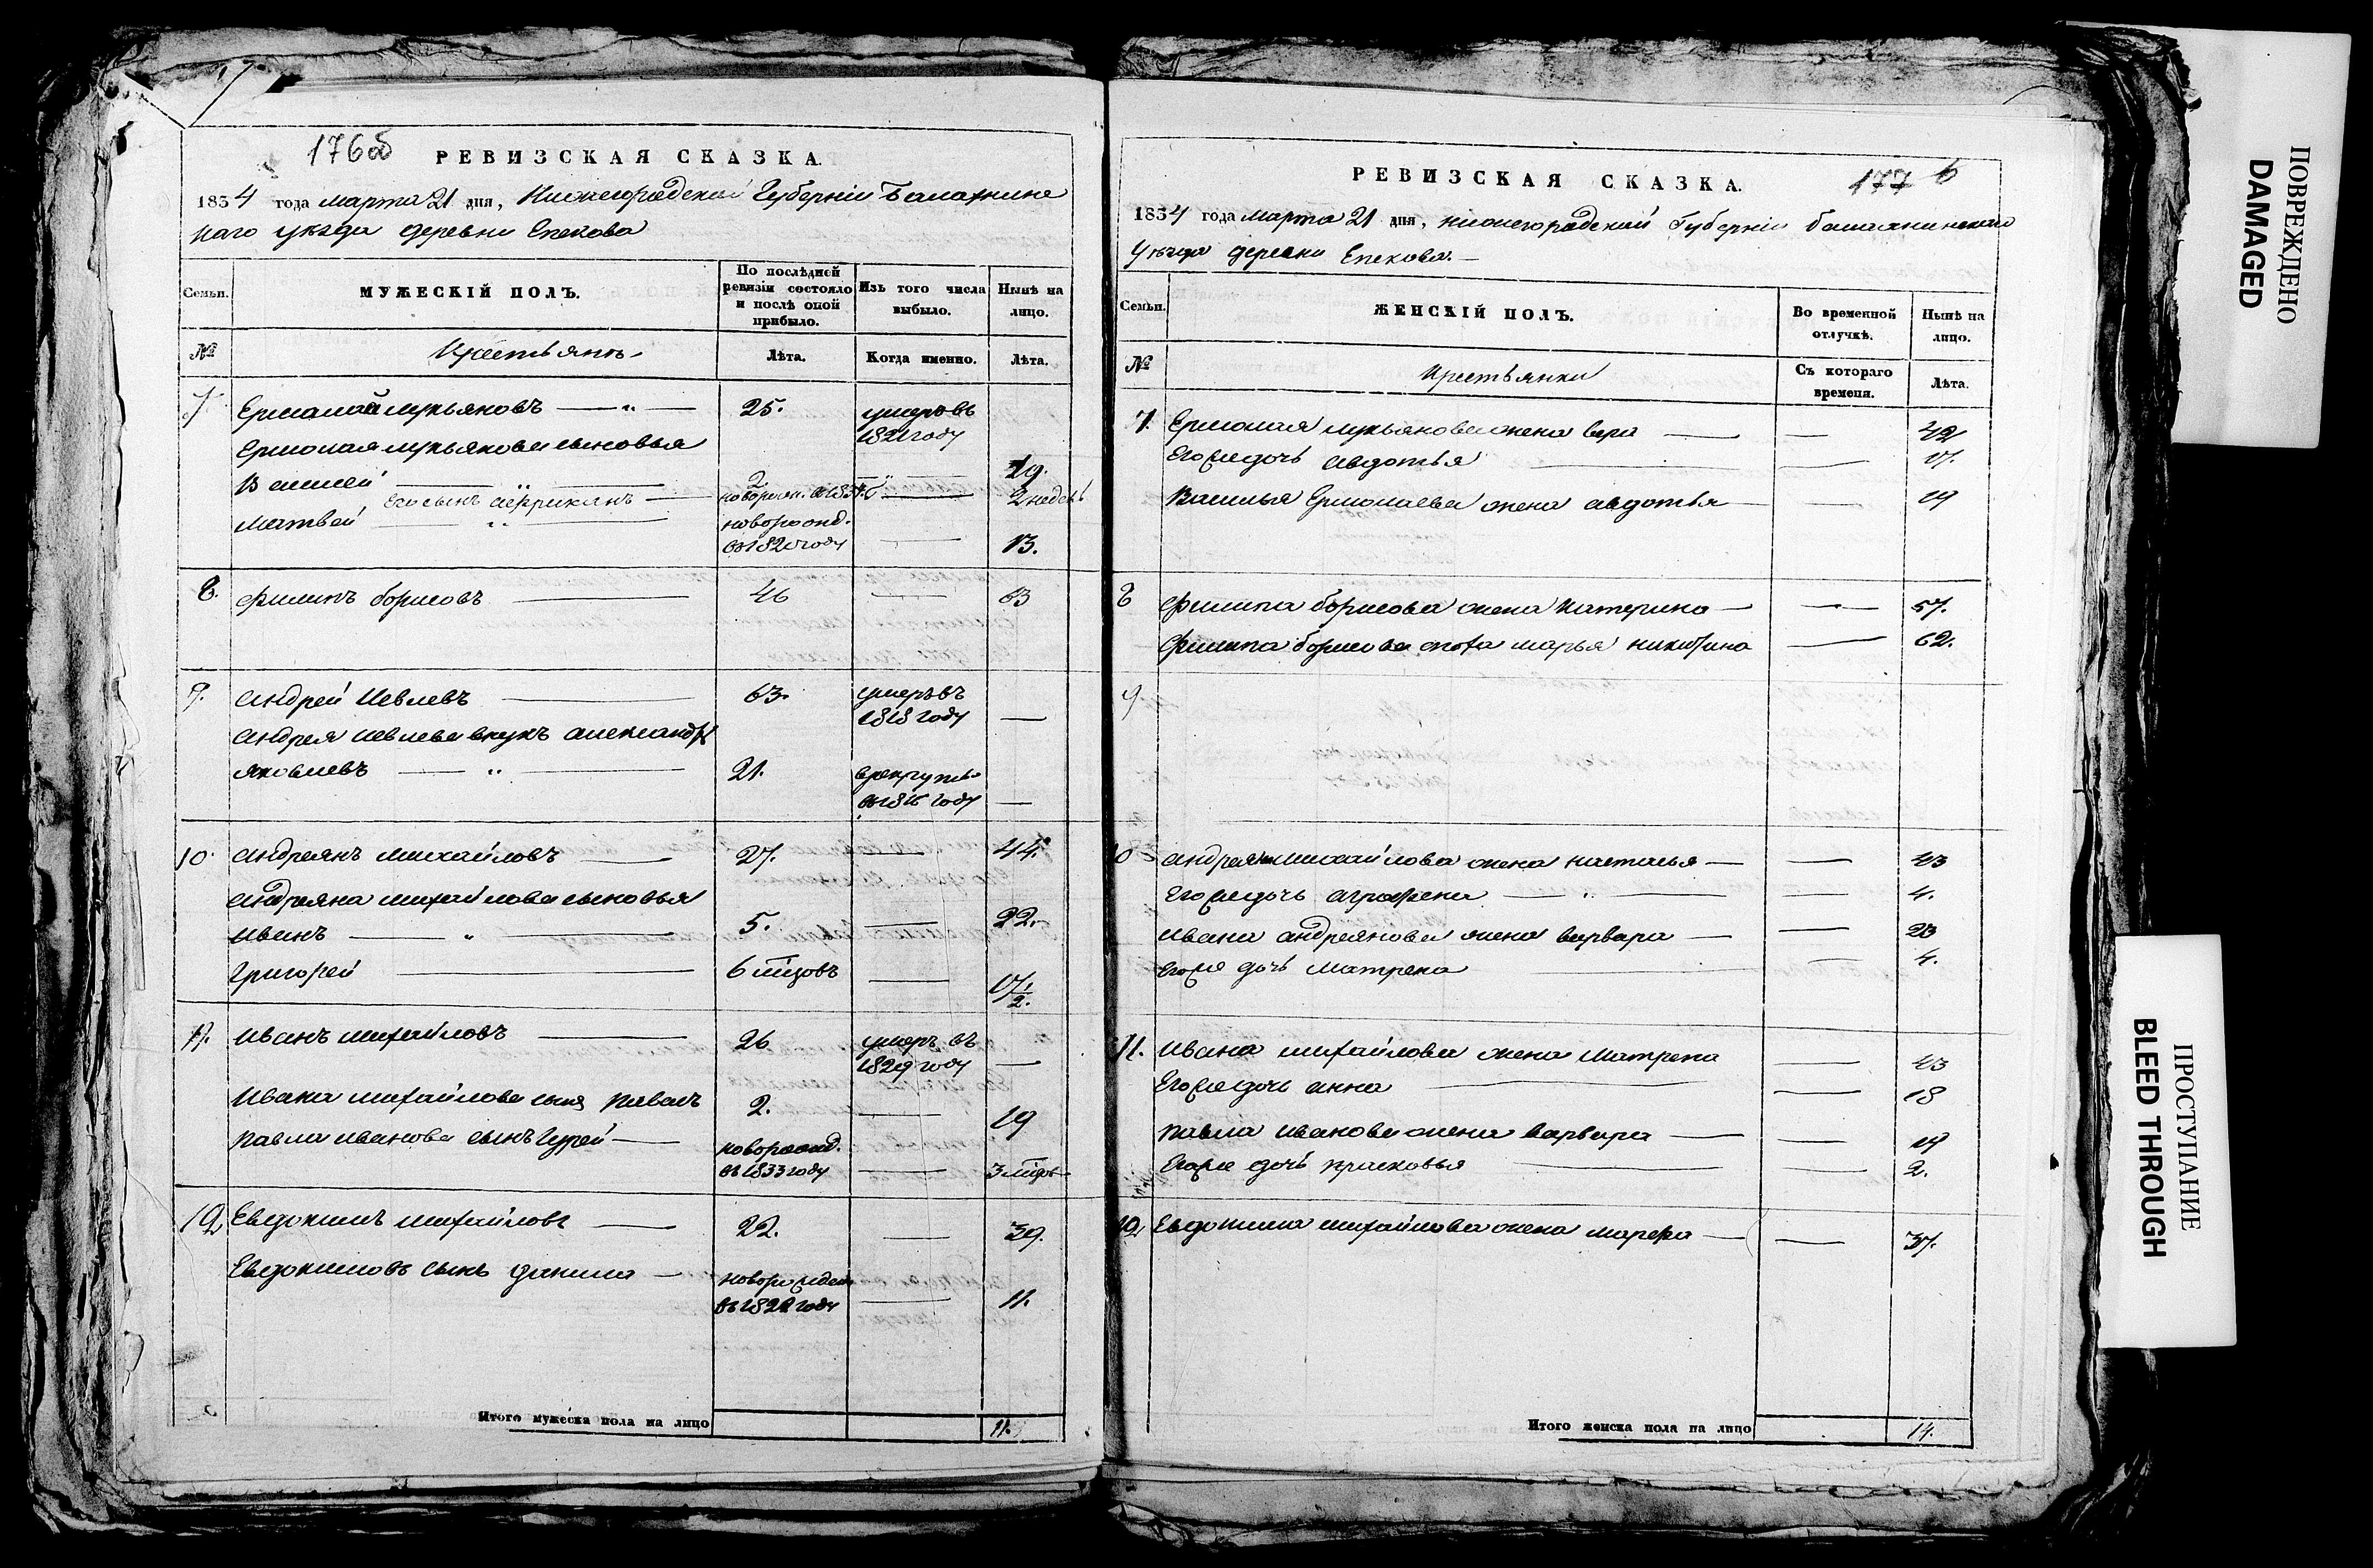 176об
РЕВИЗСКАЯ СКАЗКА.
1834 года марта 21 дня, Нижегородской Губерніи Балахнинс
каго уѣзда деревни Епехова
Семьи. МУЖЕСКІЙ ПОЛЪ. По послѣдней ревизіи состояло и послѣ оной прибыло. Изъ того числа выбыло. Нынѣ на лицо.
№ Крестьянъ Лѣта. Когда именно. Лѣта.
7. Ермолай лукьяновъ 25. умеръ въ
1821 году
Ермолая лукьянова сыновья
Василей 2. 19.
Его сынъ Африканъ новорожд. въ 1834. 2 недель
Матвей новорожд.
въ 1820 году 13.
8. Филипъ борисовъ 46 63
9. андрей Иевлевъ 63. умеръ въ
1818 году
андрея иевлева внукъ александръ
яковлевъ 21. врекруты
въ 1816 году
10. андреянъ михайловъ 27. 44.
андреяна михайлова сыновья
иванъ 5. 22.
григорей 6 мцовъ 17 1/2.
11. иванъ михайловъ 26 умеръ въ
1829 году
Ивана михайлова сынъ Павелъ 2. 19
павла иванова сынъ гурей новорожд.
въ 1833 году 3 мцов
12 Евдокимъ михайловъ 22. 39.
Евдокимовъ сынъ данила новорожден
въ 1822 году 11.
Итого мужеска пола на лицо 11.
177 б
РЕВИЗСКАЯ СКАЗКА.
1834 года марта 21 дня, нижегородской Губерніи балахнинскаго
уѣзда деревни Епехова.
Семьи. ЖЕНСКІЙ ПОЛЪ. Во временной отлучкѣ. Нынѣ на лицо.
№ Крестьянки Съ котораго времени. Лѣта.
7. Ермолая лукьянова жена вера 42
Его же дочь авдотья 17.
Василья Ермолаева жена авдотья 19
8 Филипа борисова жена катерина 57.
Филипа борисова марья никитина 62.
9
10 андреяна михайлова жена наталья 43
Его же дочь аграфена 4.
ивана андреянова жена варвара 23
его же дочь матрена 4.
11. ивана михайлова жена матрена 43
Его же дочь анна 18
павла иванова жена варвара 19
Его же дочь прасковья 2.
12 Евдокима михайлова жена марфа 37.
Итого женска пола на лицо 14.
ПОВРЕЖДЕНО
DAMAGED
ПРОСТУПАНИЕ
BLEED THROUGH